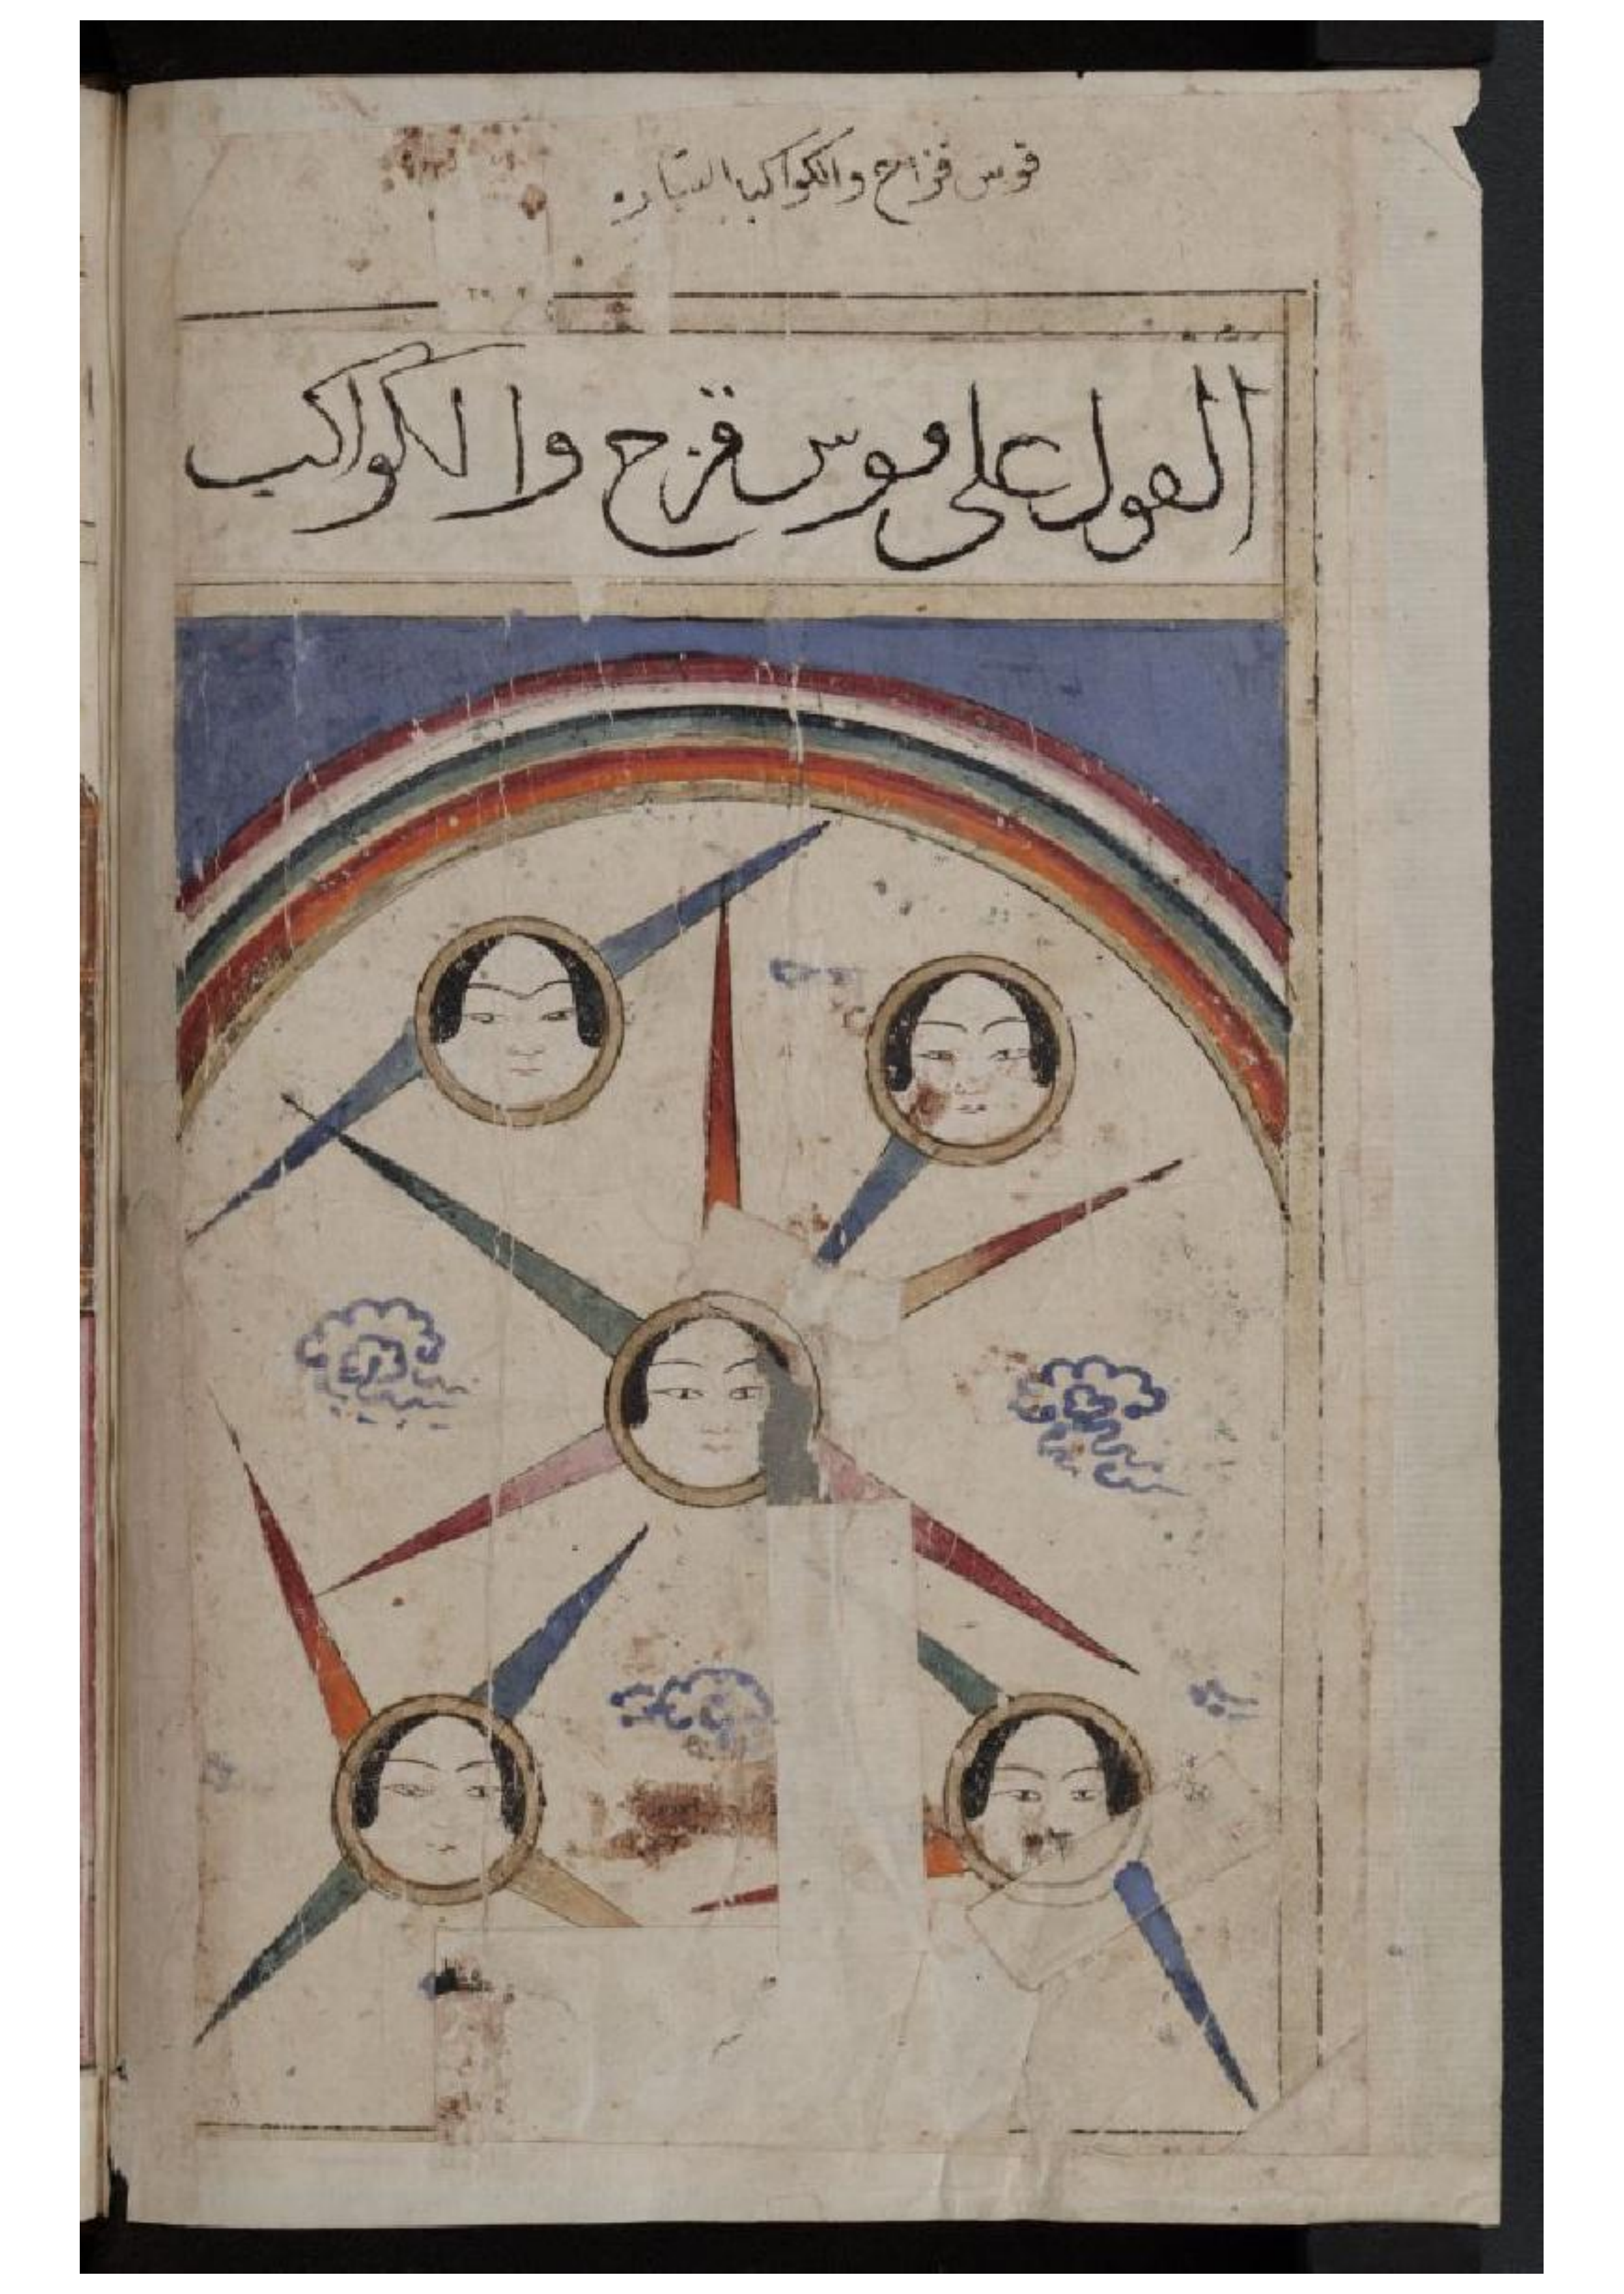 قوس قزاح والكواكب السياره
القول على قوس قزح والكواكب